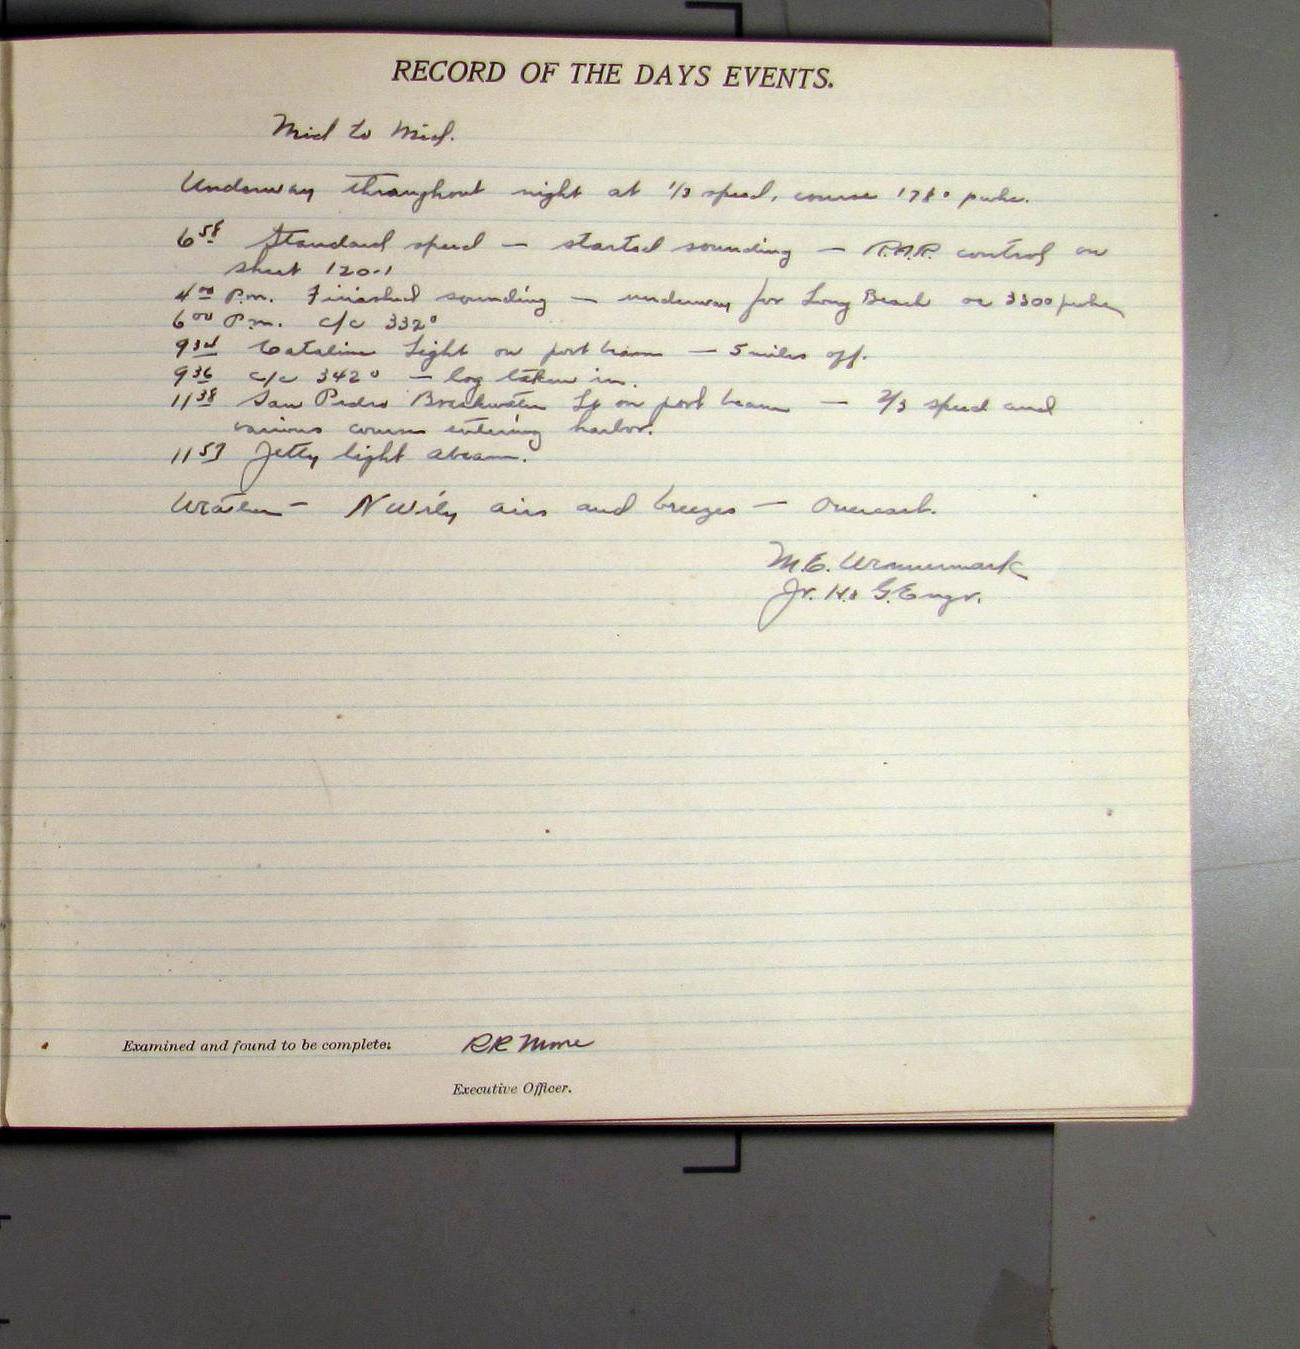 RECORD OF THE DAYS EVENTS.
Mid to Mid.
Underway throughout night at 1/3 speed, course 178° psc.
6 58 Standard speed — started sounding — R.A.R. control on
sheet 120-1
4 00 P.m. Finished sounding — underway for Long Beach on 330°
6 00 P.m. c/c 332°
9 34 Catalina Light on port beam — 5 miles off.
9 36 c/c 342° — log taken in.
11 38 San Pedro Breakwater Lt on port beam — 2/3 speed and
various courses entering harbor.
11 57 Jetty light abeam.
Weather — NW'ly airs and breezes — Overcast.
M.E. Wennermark
Jr. H. & G. Engr.
Examined and found to be complete: R R Moore
Executive Officer.